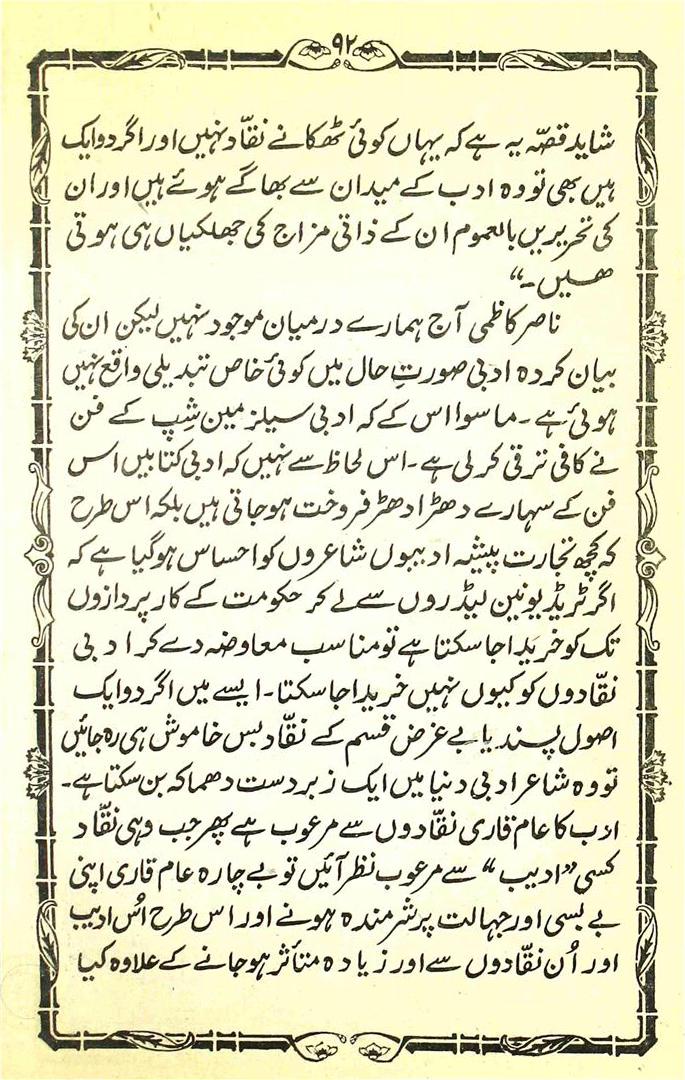 ۹۲
شاید قصّہ یہ ہے کہ یہاں کوئی ٹھکانے نقّاد نہیں اور اگر دو ایک
ہیں بھی تو وہ ادب کے میدان سے بھاگے ہوئے ہیں اور ان
کی تحریریں بالعموم ان کے ذاتی مزاج کی جھلکیاں ہی ہوتی
ھیں۔“
ناصر کاظمی آج ہمارے درمیان موجود نہیں لیکن ان کی
بیان کردہ ادبی صورتِ حال میں کوئی خاص تبدیلی واقع نہیں
ہوئی ہے۔ ماسوا اس کے کہ ادبی سیلز مین شِپ کے فن
نے کافی ترقی کر لی ہے۔ اس لحاظ سے نہیں کہ ادبی کتابیں اس
فن کے سہارے دھڑا دھڑ فروخت ہو جاتی ہیں بلکہ اس طرح
کہ کچھ تجارت پیشہ ادیبوں شاعروں کو احساس ہو گیا ہے کہ
اگر ٹریڈ یونین لیڈروں سے لے کر حکومت کے کارپردازوں
تک کو خریدا جا سکتا ہے تو مناسب معاوضہ دے کر ادبی
نقّادوں کو کیوں نہیں خریدا جا سکتا۔ ایسے میں اگر دو ایک
اصول پسند یا بے غرض قسم کے نقّاد بس خاموش ہی رہ جائیں
تو وہ شاعر ادبی دنیا میں ایک زبردست دھماکہ بن سکتا ہے۔
ادب کا عام قاری نقّادوں سے مرعوب ہے پھر جب وہی نقّاد
کسی ”ادیب“ سے مرعوب نظر آئیں تو بے چارہ عام قاری اپنی
بے بسی اور جہالت پر شرمندہ ہونے اور اس طرح اُس ادیب
اور اُن نقّادوں سے اور زیادہ متأثر ہو جانے کے علاوہ کیا